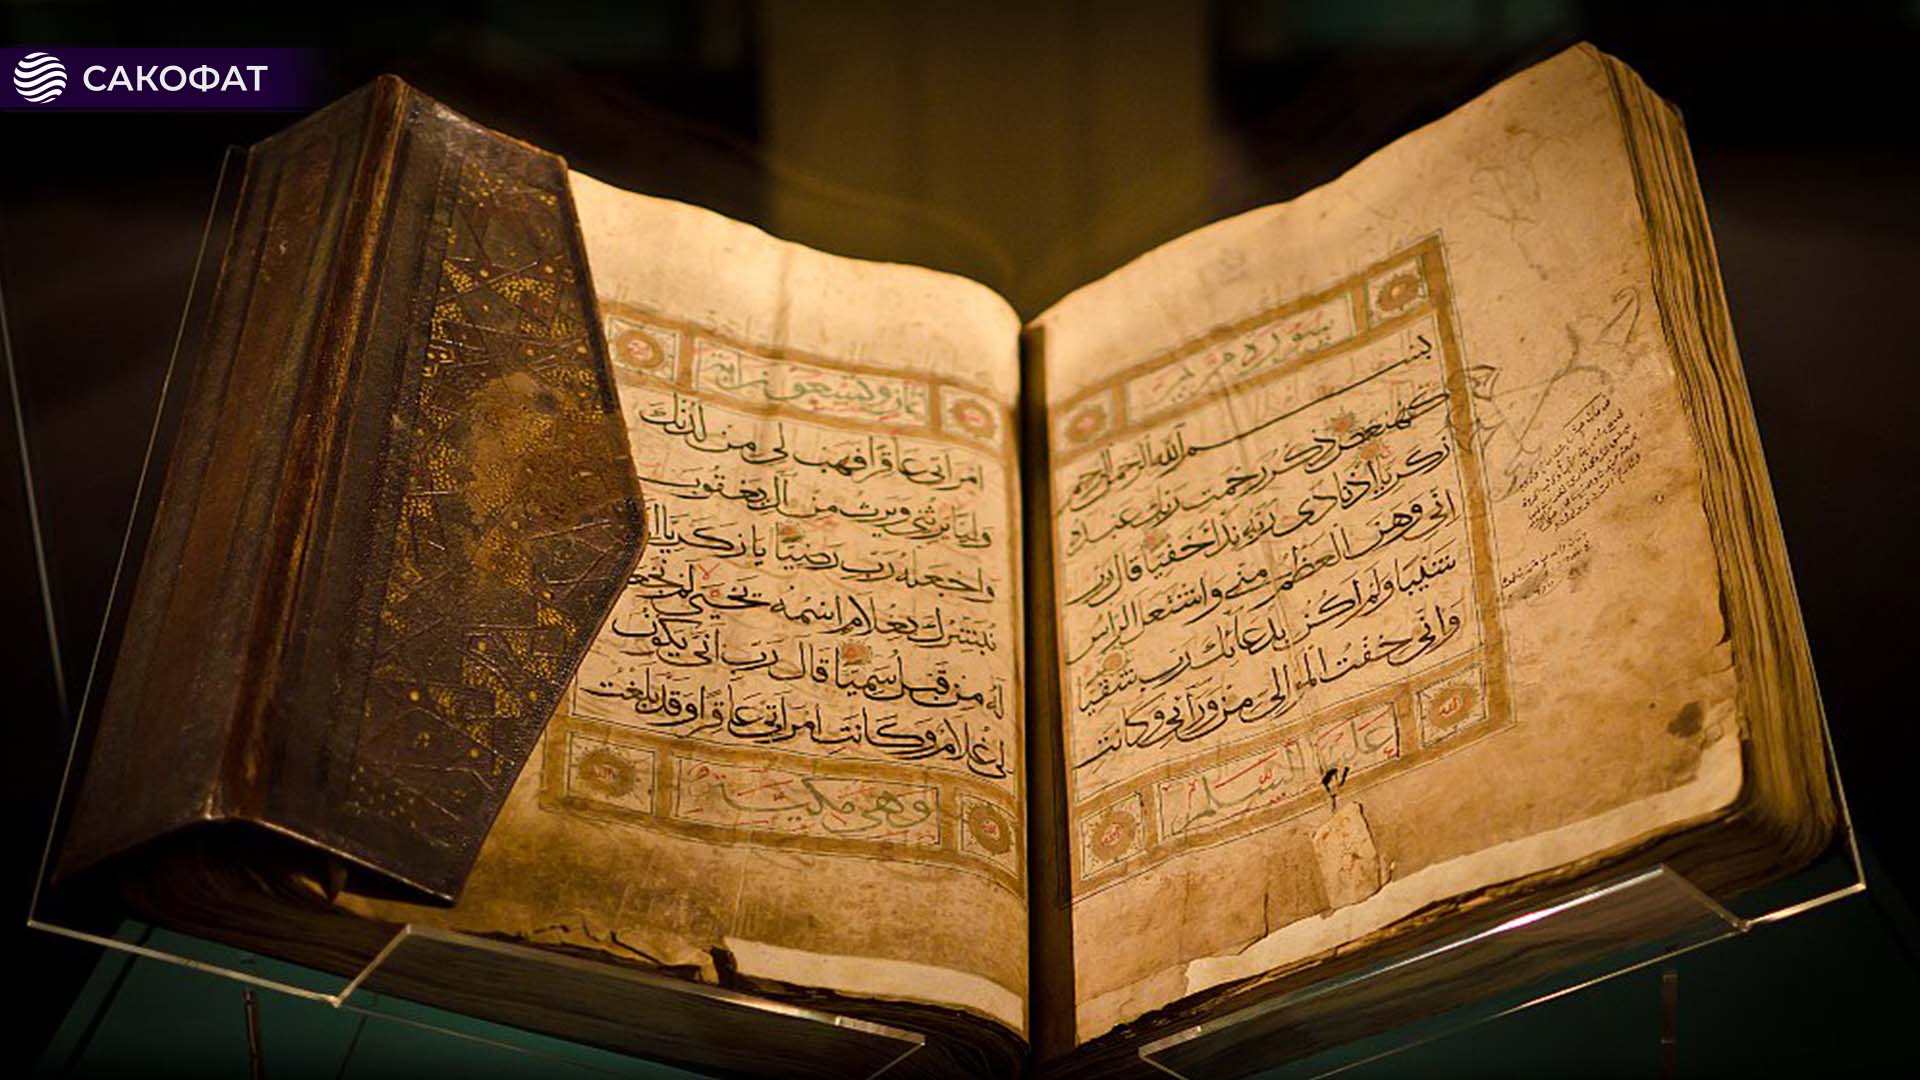 САКОФАТ
سورة مريم
بسم الله الرحمن الرحيم
كهيعص ذكر رحمت ربك عبده
زكريا اذ نادى ربه ندا خفيا قال رب
اني وهن العظم مني واشتعل الراس
شيبا ولم اكن بدعائك رب شقيا
واني خفت الموالي من ورائي وكانت
عليها السلم
ثمان وتسعون اية
امراتي عاقرا فهب لي من لدنك
وليا يرثني ويرث من آل يعقوب
واجعله رب رضيا يا زكريا
نبشرك بغلام اسمه يحيى لم نجعل
له من قبل سميا قال رب انى يكون
لي غلام وكانت امراتي عاقرا وقد بلغت
وهي مكية